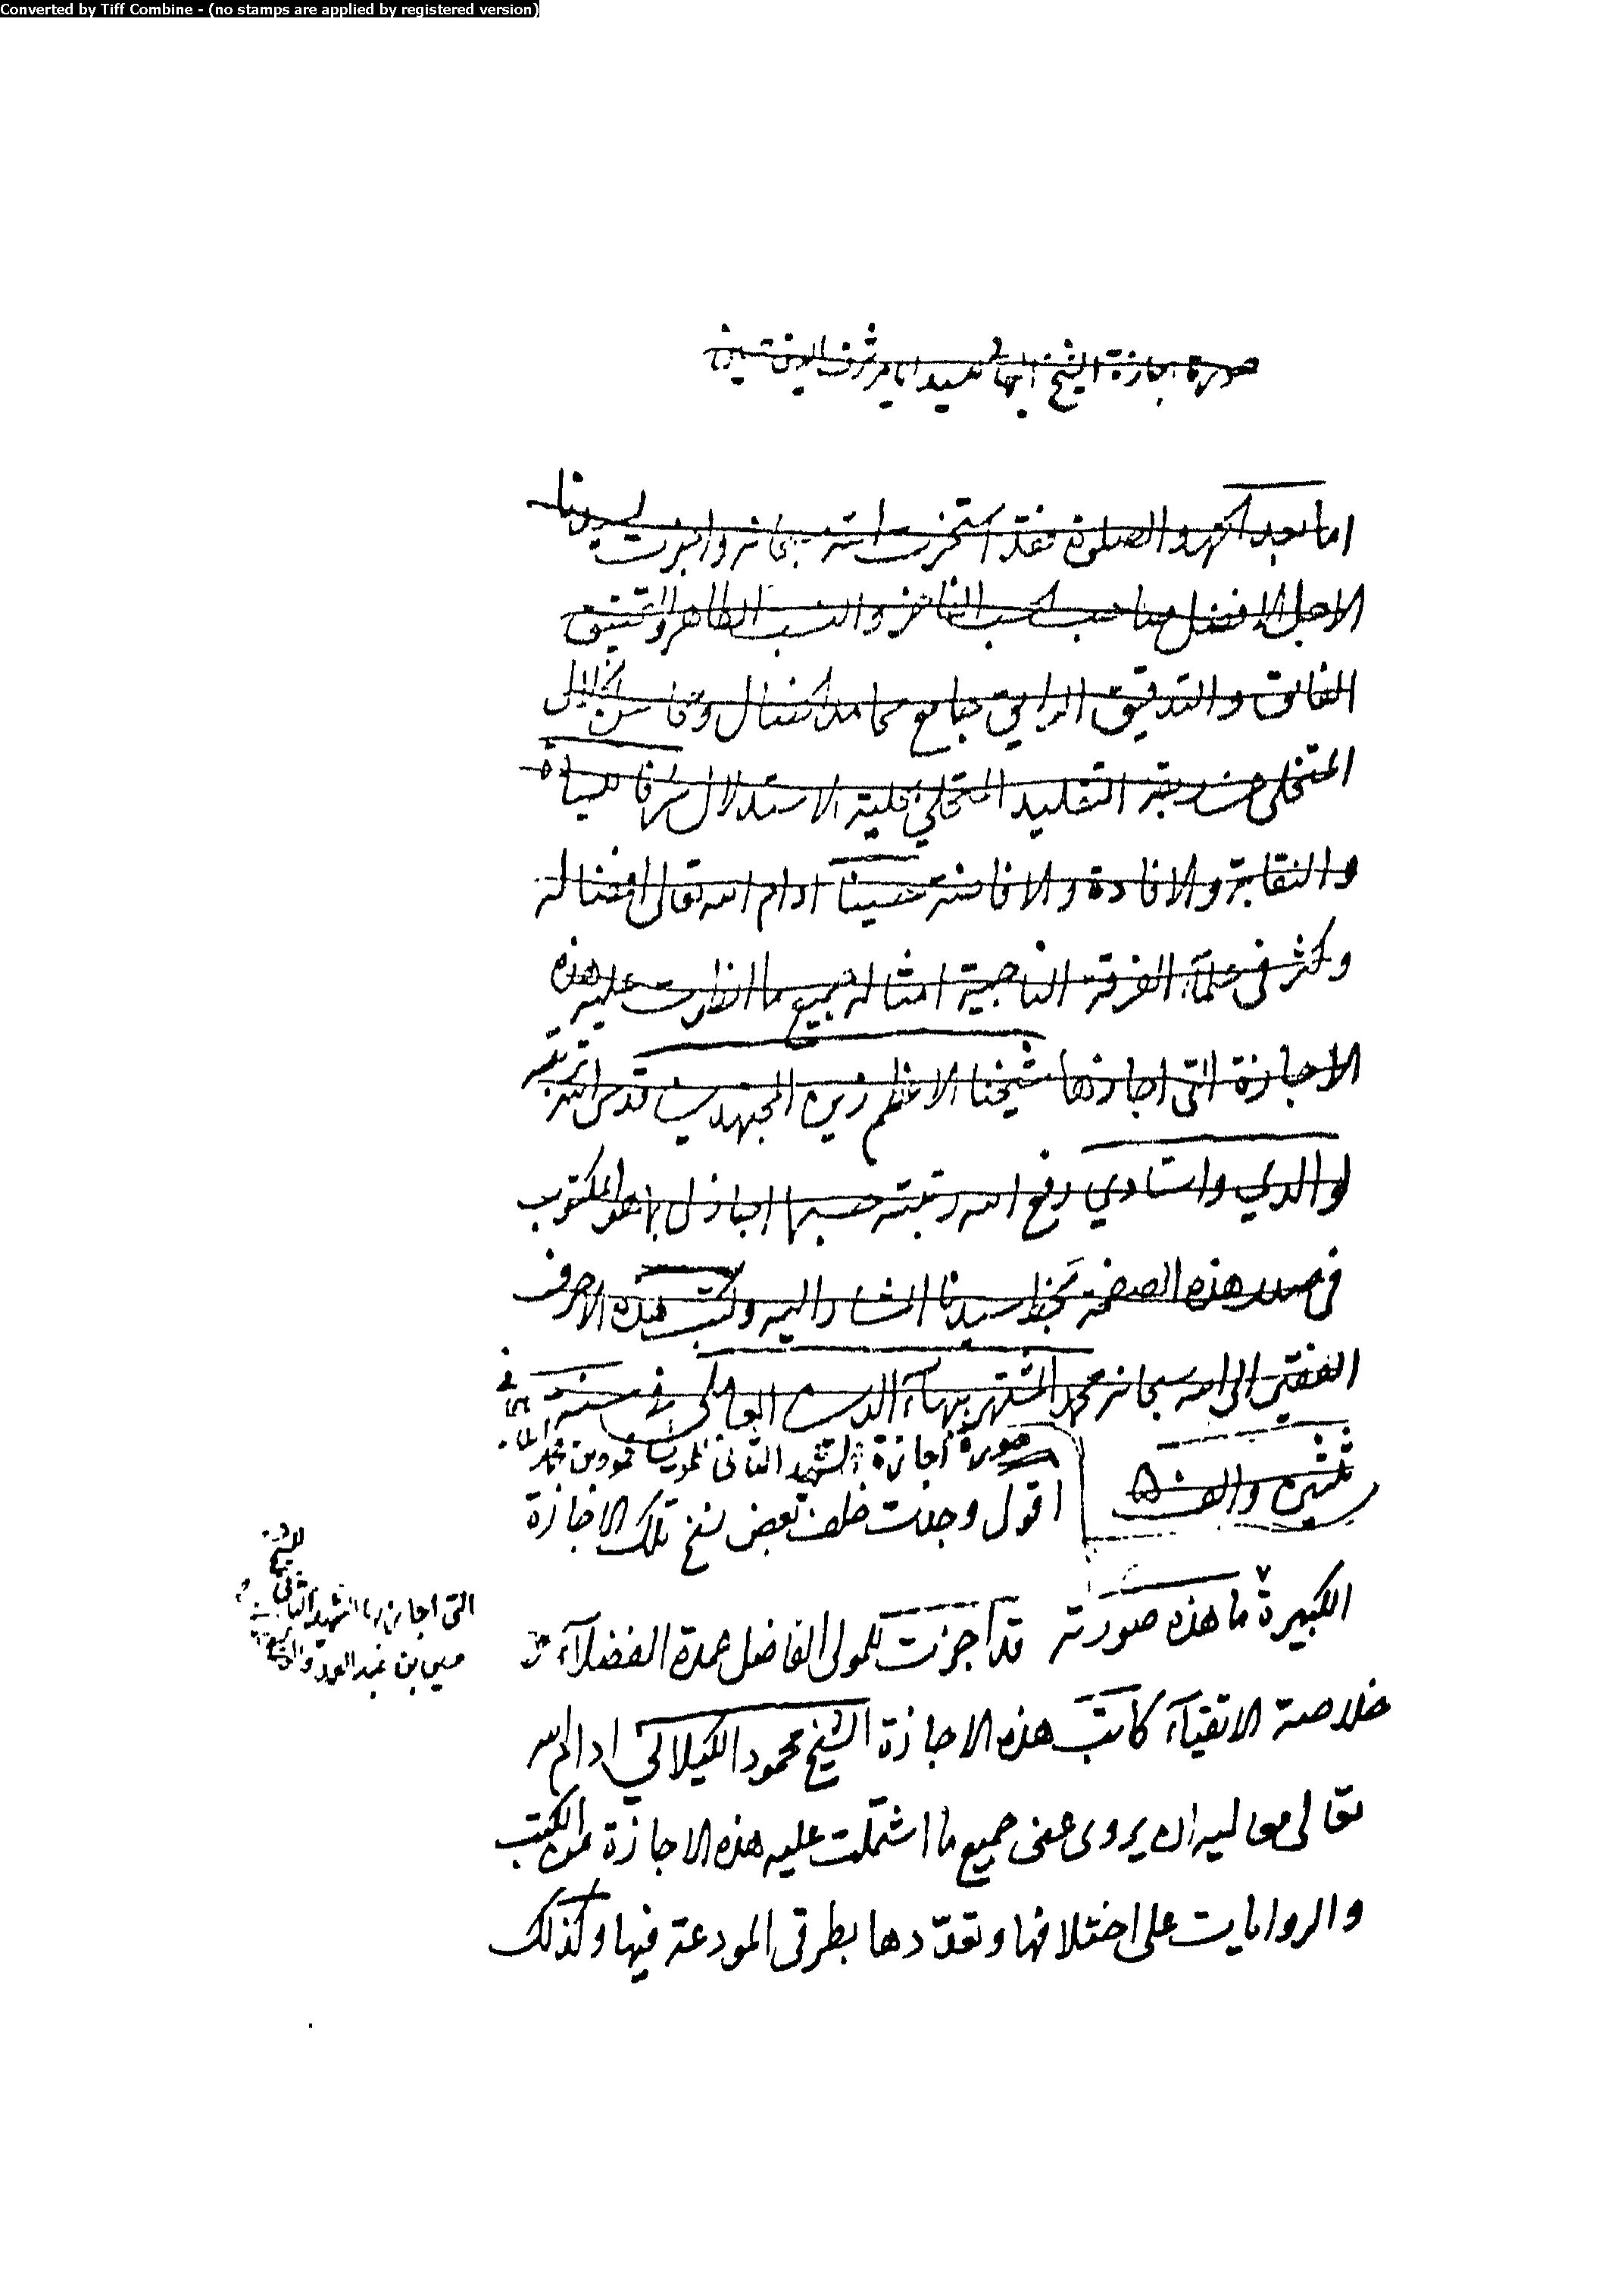 Converted by Tiff Combine - (no stamps are applied by registered version)
صورة اجازة الشيخ البهائي للسيد
اما بعد الحمد والصلوة فقد استخرت الله سبحانه واجزت لسيدنا
الاجل الافضل صاحب الحسب الفاخر والنسب الطاهر والتحقيق
الفائق والتدقيق الرايق جامع محامد الخصال ومحاسن الخلال
المتخلى عن ربقة التقليد المتحلي بحلية الاستدلال شرفا للسيادة
والنقابة والافادة والافاضة حسينا ادام الله تعالى افضاله
وكثر في علماء الفرقة الناجية امثاله جميع ما انطوت عليه هذه
الاجازة التي اجازها شيخنا الاعظم زين المجتهدين قدس الله تربته
لوالدي واستادي رفع الله رتبته حسبما اجاز لي ما هو المكتوب
في صدر هذه الصفحة بخط سيدنا المشار اليه وكتب هذه الاحرف
الفقير الى الله سبحانه محمد المشتهر ببهاء الدين العاملي في سنة
ثلثين والف
صورة اجازة الشهيد الثاني محمود بن محمد
اقول وجدت خلف بعض نسخ تلك الاجازة
التي اجازها الشهيد الثاني للشيخ
حسين بن عبد الصمد والد
الكبيرة ما هذه صورته قد اجزت للمولى الفاضل عمدة الفضلاء
خلاصة الاتقياء كاتب هذه الاجازة الشيخ محمود الكيلاني ادام الله
تعالى معاليه ان يروي عني جميع ما اشتملت عليه هذه الاجازة من الكتب
والروايات على اختلافها وتعدّدها بطرقي المودعة فيها وكذلك